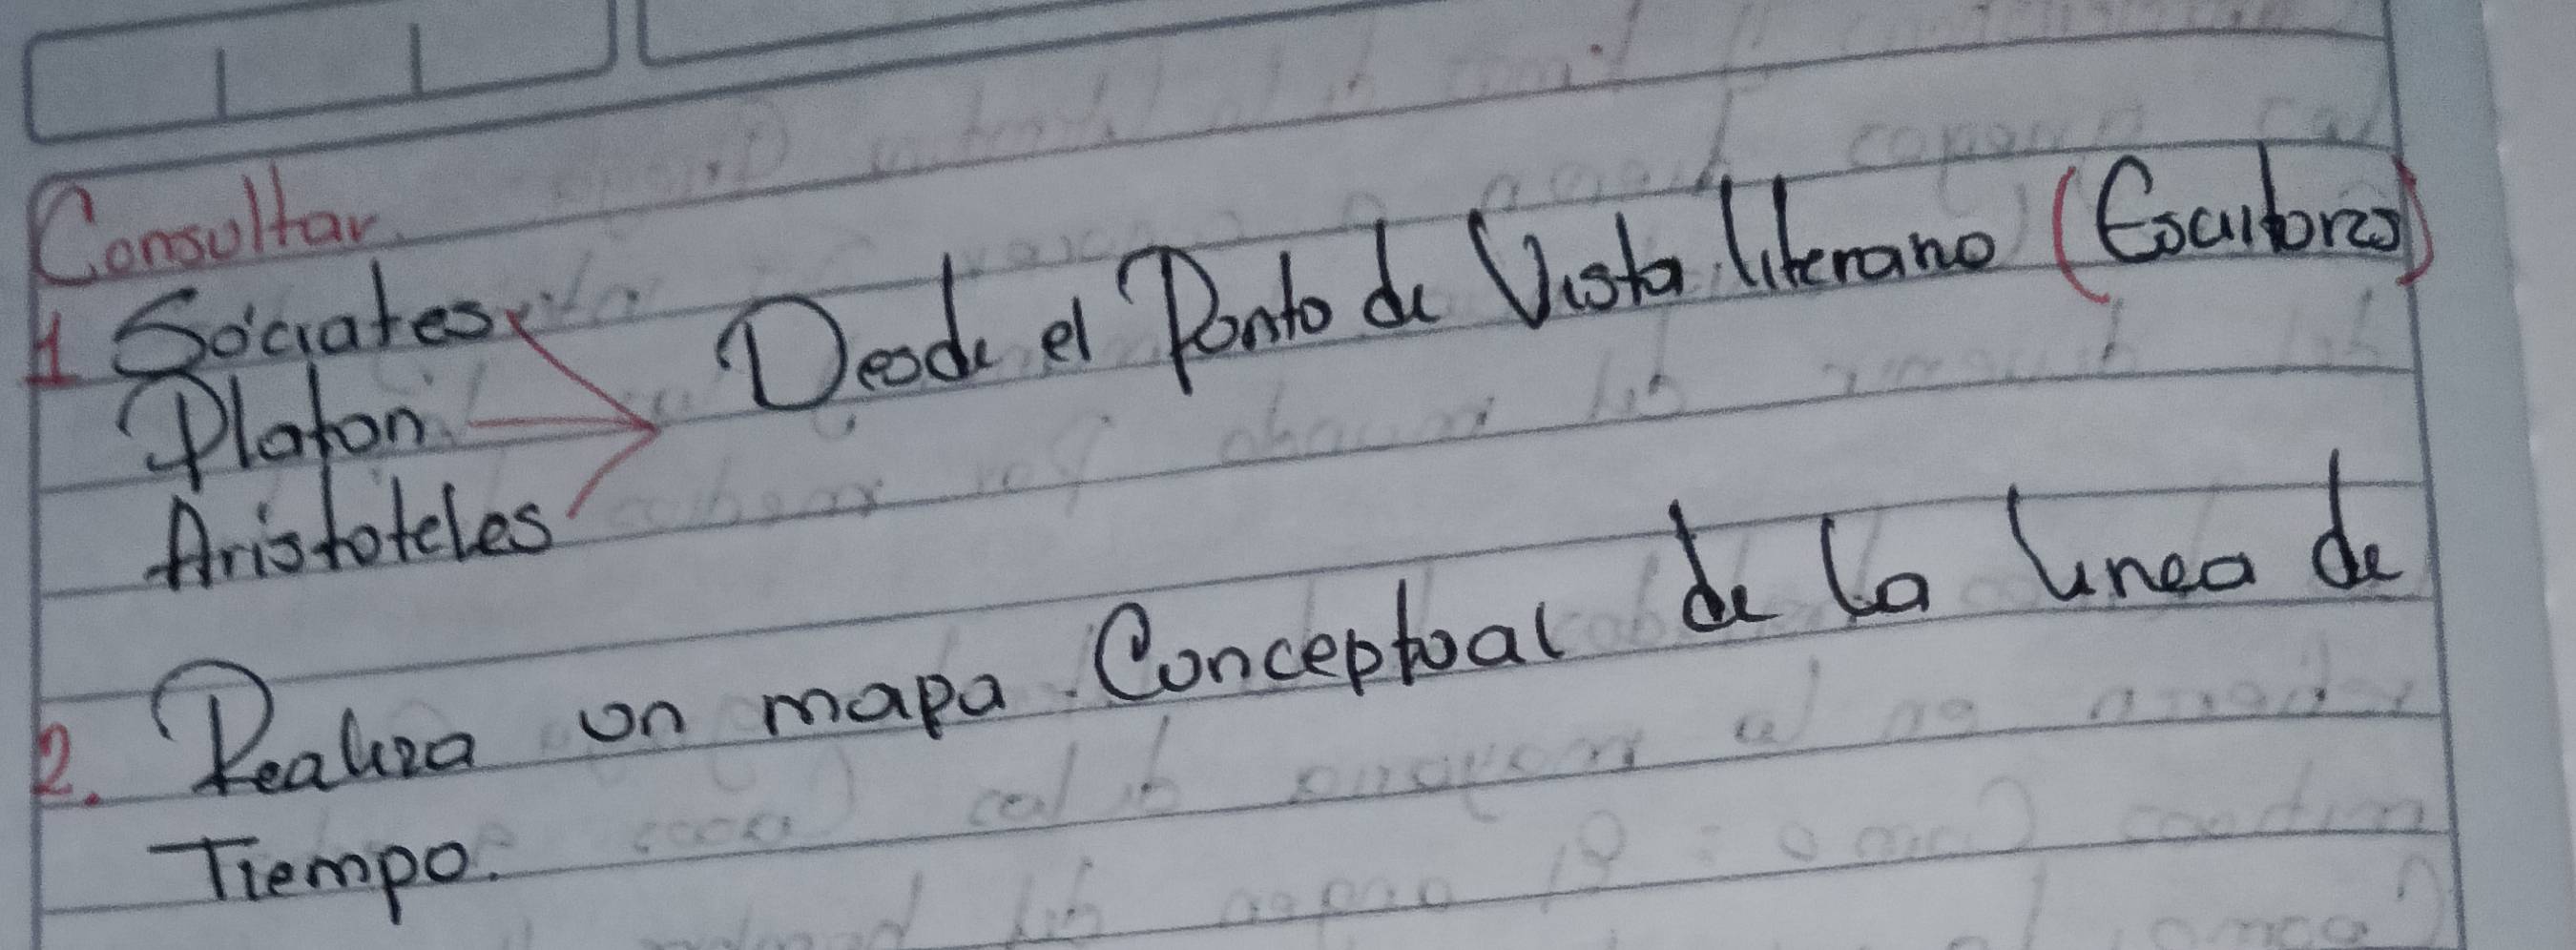 Consultar
1 Sócrates Desde el Punto de Vista literario (Escritores)
Platon
Aristoteles
2. Realiza un mapa Conceptual de la linea de
Tiempo.